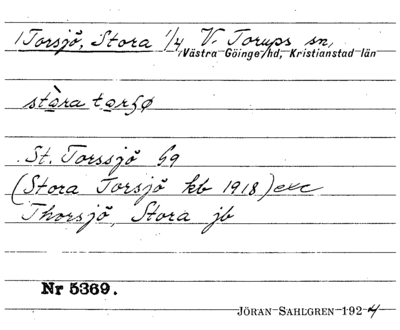 Torsjö, Stora 1/4 V. Torups sn,
Västra Göinge hd, Kristianstad län
stàra tarʃø
St. Torssjö
(Stora Torsjö kb 1918) exc
Thorsjö, Stora jb
Nr 5369.
JÖRAN SAHLGREN 1924